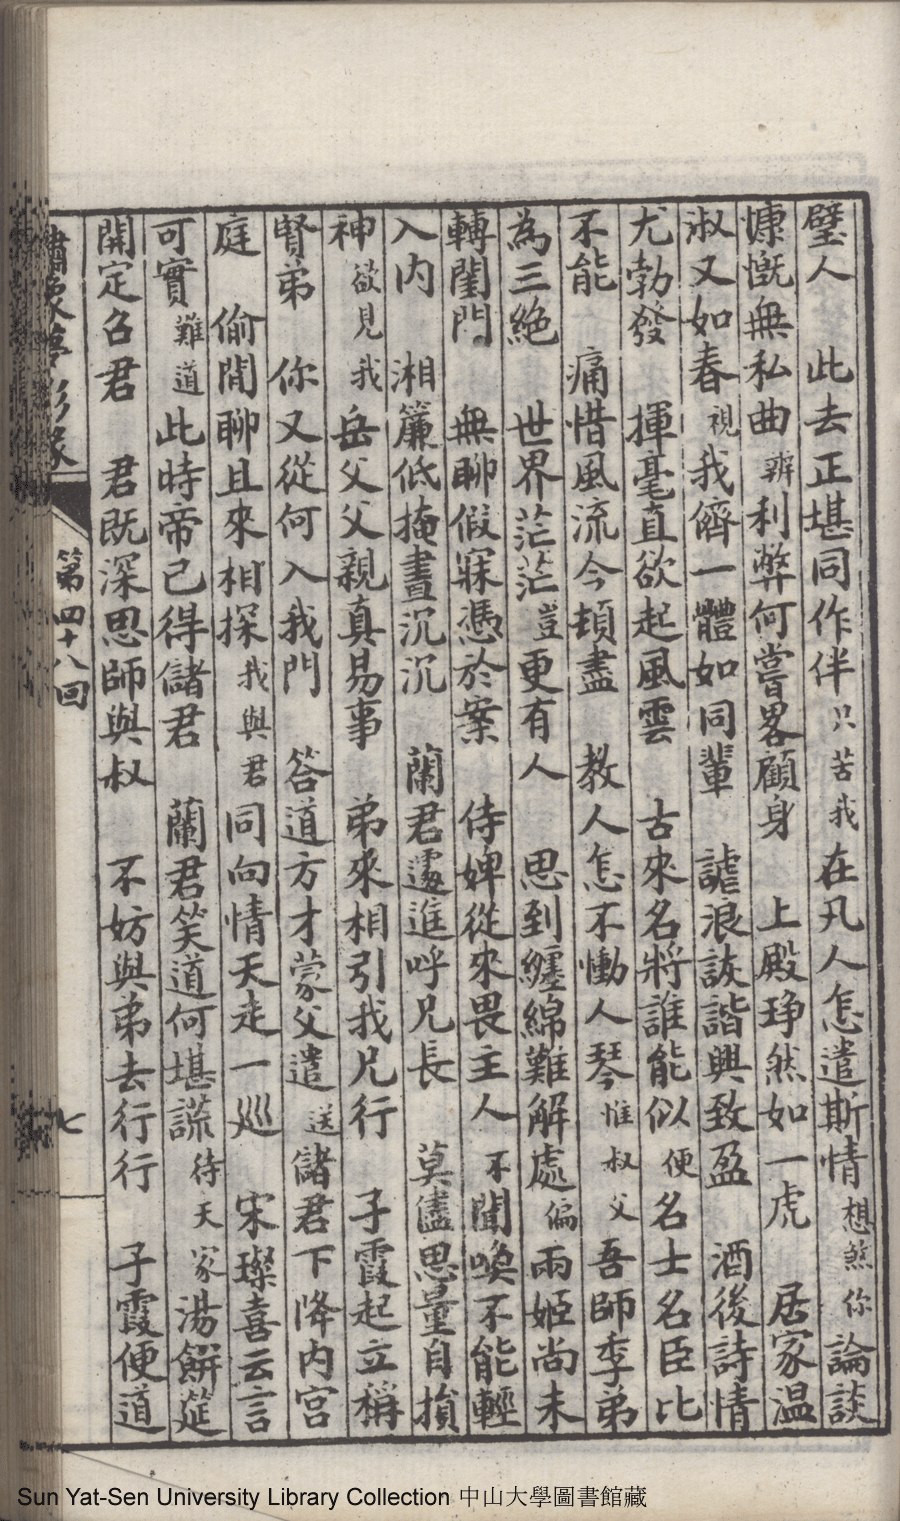 璧人　此去正堪同作伴只苦我在凡人怎遣斯情想煞你論談
慷慨無私曲辨利弊何嘗畧顧身　上殿琤然如一虎　居家温
淑又如春視我儕一體如同輩　謔浪詼諧興致盈　酒後詩情
尤勃發　揮毫直欲起風雲　古來名將誰能似便名士名臣比
不能　痛惜風流今頓盡　教人怎不慟人琴惟叔父吾師季弟
為三絶　世界茫茫豈更有人　思到纏綿難解處偏兩姬尚未
轉閨門　無聊假寐憑於案　侍婢從來畏主人不聞喚不能輕
入内　湘簾低掩晝沉沉　蘭君遽進呼兄長　莫儘思量自損
神欲見我岳父父親真易事　弟來相引我兄行　子霞起立稱
賢弟　你又從何入我門　答道方才蒙父遣送儲君下降内宫
庭　偷閒聊且來相探我與君同向情天走一巡　宋璨喜云言
可實難道此時帝己得儲君　蘭君笑道何堪謊待天家湯餅筵
開定召君　君既深思師與叔　不妨與弟去行行　子霞便道
繡像夢影緣　第四十八回　七
Sun Yat-Sen University Library Collection 中山大學圖書館藏